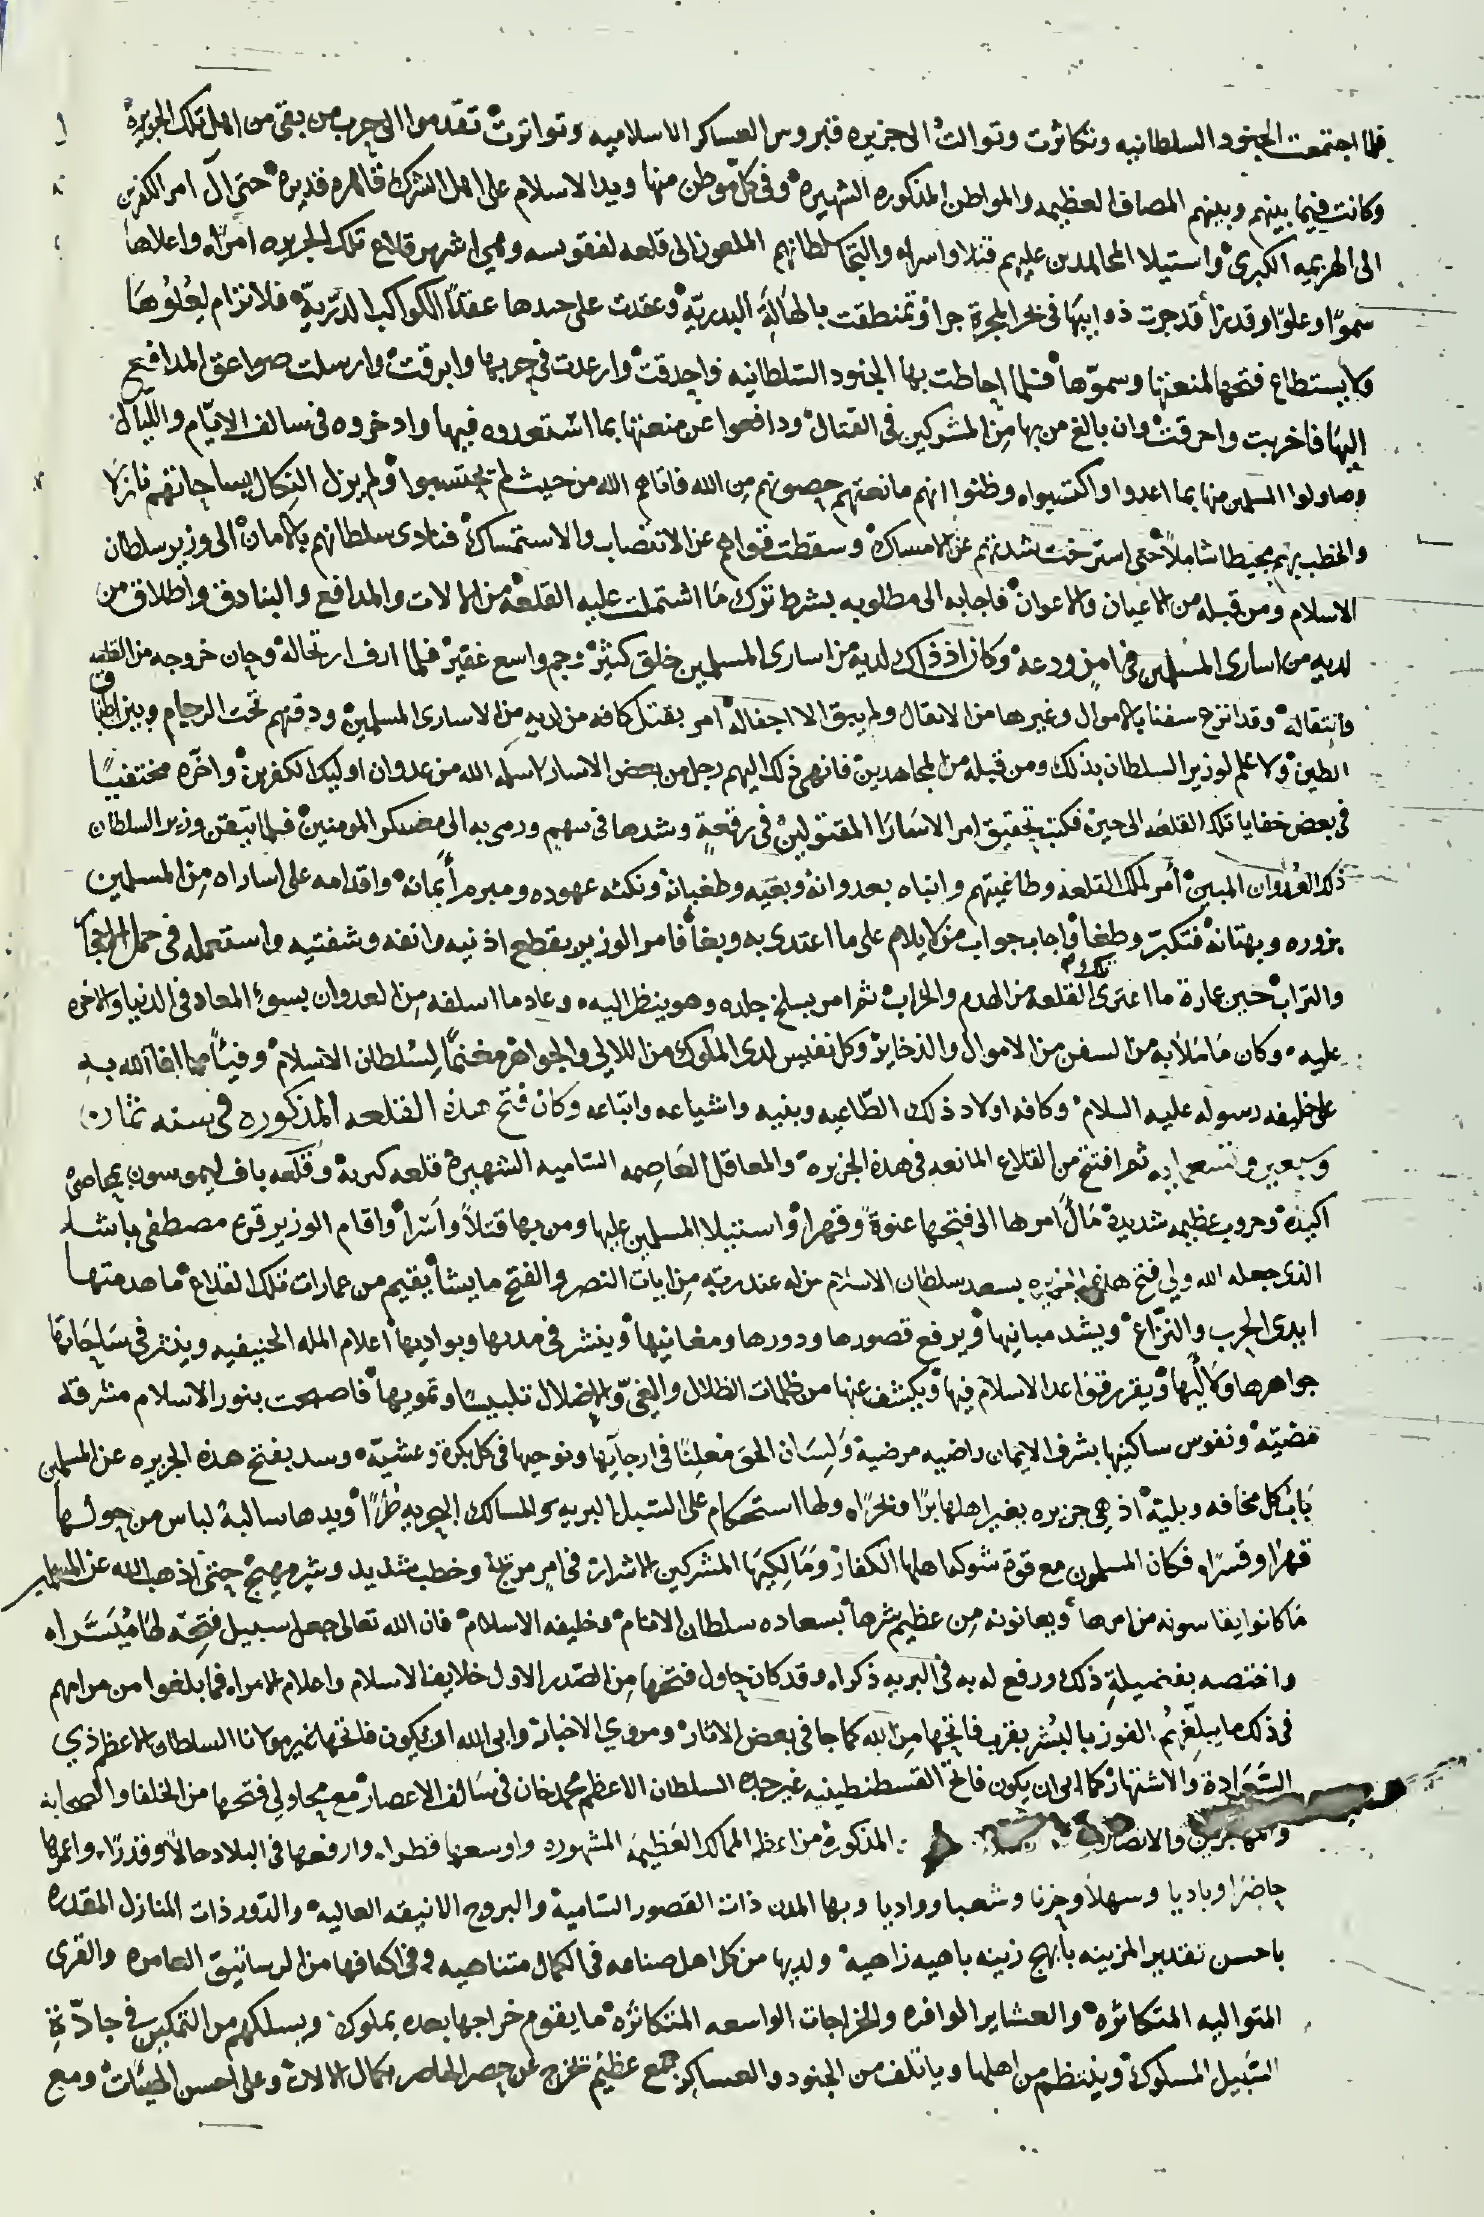 فلما اجتمعت الجنود السلطانيه وتكاثرت وتوالت الى جزيره قبروس العساكر الاسلاميه وتواترت تقدموا الى حرب من بقى من اهل تلك الجزيرة
وكانت فيما بينهم وبينهم المصاف العظيمه والمواطن المذكوره الشهيرة وفى كل موطن منها ويد الاسلام على اهل الشرك قاهره قديرة حتى آل امر الكفرين
الى الهزيمه الكبرى واستيلا المجاهدين عليهم قتلا واسرا والتجا سلطانهم الملعون الى قلعه لفقوسه وهى اشهر قلاع تلك الجزيره امرا واعلاها
سموا وعلوا وقدرا قد جرت ذوايبها فى نحر المجرة جرا وتمنطقت بالهالة البدرية وعقدت على جيدها عقد الكواكب الدرية فلا ترام لعلوها
ولا يستطاع فتحها لمنعتها وسموها فلما احاطت بها الجنود السلطانيه واحدقت وارعدت فى حربها وابرقت وارسلت صواعق المدافع
اليها فاخربت واحرقت وان بالغ من بها من المشركين فى القتال ودافعوا عن منعتها بما استعدوه فيها وادخروه فى سالف الايام والليال
وصاولوا المسلمين منها بما اعدوا واكتسبوا وظنوا انهم مانعتهم حصونهم من الله فاتاهم الله من حيث لم يحتسبوا ولم يزل النكال بساحاتهم نازلا
والخطب بهم محيطا شاملا حتى استرخت شدتهم عن الامساك وسقطت قواهم عن الانتصاب والاستمساك فنادى سلطانهم بالامان الى وزير سلطان
الاسلام ومن قبله من الاعيان والاعوان فاجابه الى مطلوبه بشرط ترك ما اشتملت عليه القلعة من الالات والمدافع والبنادق واطلاق من
لديه من اسارى المسلمين فى امن ودعه وكان اذ ذاك لديه من اسارى المسلمين خلق كثير وجم واسع غفير فلما ازف ارتحاله وحان خروجه من القلعه
وانتقاله وقد اترع سفنا بالاموال وغيرها من الاثقال ولم يبق الا اجفاله امر بقتل كافه من لديه من الاسارى المسلمين ودفنهم تحت الرجام وبين اطباق
الطين ولا علم لوزير السلطان بذلك ومن قبله من المجاهدين فانهى ذلك اليهم رجل من بعض الاسارا سلمه الله من عدوان اوليك الكفرين واخره مختفيا
فى بعض خفايا تلك القلعه الى حين فكتب تحقيق امر الاسارا المقتولين فى رقعة وشدها فى سهم ورمى به الى معسكر المومنين فلما تيقن وزير السلطان
ذلك العدوان المبين أمر لملك القلعة وطاغيتهم واتباه بعدوانه وبغيه وطغيانه ونكثه عهوده ومبرم أيمانه واقدامه على اساراه من المسلمين
بزوره وبهتانه فتكبر وطغا واجاب جواب من لا يلام على ما اعتدى به وبغا فامر الوزير بقطع اذنيه وانفه وشفتيه واستعمله فى حمل الحجارة
والتراب حين عمارة ما اعترى تلك القلعه من الهدم والخراب ثم امر بسلخ جلده وهو ينظر اليه وعاد ما اسلفه من العدوان بسوء المعاد فى الدنيا والاخره
عليه وكان ما ملأ به من السفن من الاموال والذخاير وكل نفيس لدى الملوك من اللالى والجواهر مغنما لسلطان الاسلام وفيئا مما افا الله به
على خليفه رسوله عليه السلام وكافه اولاد ذلك الطاغيه وبنيه واشياعه واتباعه وكان فتح هذه القلعه المذكوره فى سنه ثمان
وسبعين وتسعمايه ثم افتتح من القلاع المانعه فى هذه الجزيره والمعاقل العاصمه الساميه الشهيرة قلعه كبرية وقلعه باف ليموسون بمحاصرة
اكيدة وحروب عظيمه شديدة مآل امرها الى فتحها عنوة وقهرا واستيلا المسلمين عليها ومن بها قتلا وأسرا واقام الوزير قره مصطفى باشا
الذى جعله الله ولى فتح هذه الجزيره بسعد سلطان الاسلام من له عند ربه من ايات النصر والفتح ما يشأ يقيم من عمارات تلك القلاع ما هدمتها
ايدى الحرب والنزاع ويشد مبانيها ويرفع قصورها ودورها ومغانيها وينشر فى مدنها وبواديها اعلام المله الحنيفيه وينثر فى ساحاتها
جواهرها ولآليها ويقرر قواعد الاسلام فيها ويكشف عنها من ظلمات الظلال والغى والاضلال تلبيسا وتمويها فاصبحت بنور الاسلام مشرقه
مضيه ونفوس ساكنيها بشرف الايمان راضيه مرضية ولسان الحق معلنا فى ارجآيها ونوحيها فى كل بكرة وعشية وسد بفتح هذه الجزيره عن المسلمين
باب كل مخافه وبلية اذ هى جزيره يغير اهلها برا وبحرا ولها استحكام على السبل البريه والمسالك البحريه طرا ويدها سالبة لباس من حولها
قهرا وقسرا فكان المسلمون مع قوة شوكه اهلها الكفار ومالكيها المشركين الاشرار فى امر مريج وخطب شديد وشر مهيج حتى اذهب الله عن المسلمين
ما كانوا يقاسونه من امرها ويعانونه من عظيم شرها بسعاده سلطان الانام وخليفه الاسلام فان الله تعالى جعل سبيل فتحه لها ميسرا
واختصه بفضيلة ذلك ورفع له به فى البريه ذكرا وقد كان حاول فتحها من الصدر الاول خلايف الاسلام واعلام الامرا فما بلغوا من مرامهم
فى ذلك ما يبلغهم الفوز بالبشر بقرب فاتحها من الله كما جا فى بعض الاثار ومروي الاخبار وابى الله ان يكون فاتحها غير مولانا السلطان الاعظم ذي
السعادة والاشتهار كما ابى ان يكون فاتح القسطنطينيه غير جده السلطان الاعظم محمد خان فى سالف الاعصار مع محاولى فتحها من الخلفا والصحابه
والمهاجرين والانصار المذكورة من اعظم الممالك العظيمة المشهوره واوسعها قطرا وارفعها فى البلاد حالا وقدرا واعمرها
حاضرا وباديا وسهلا وحزنا وشعبا وواديا وبها المدن ذات القصور السامية والبروج الانيقه العاليه والدور ذات المنازل المقدره
باحسن تقدير المزينه بأبهج زينه باهيه زاهية ولديها من كل اهل صناعه فى الكمال متناهيه وفى اكنافها من الرساتيق العامره والقرى
المتواليه المتكاثرة والعشاير الوافره والخراجات الواسعه المتكاثره ما يقوم خراجها بعده بملوك ويسلكهم من التمكين فى جادة
السبيل المسلوك وينتظم من اهلها ويأتلف من الجنود والعساكر جمع عظيم تخرج عن حصر الحاصر بكمال الالات وعلى أحسن الهيئات ومع